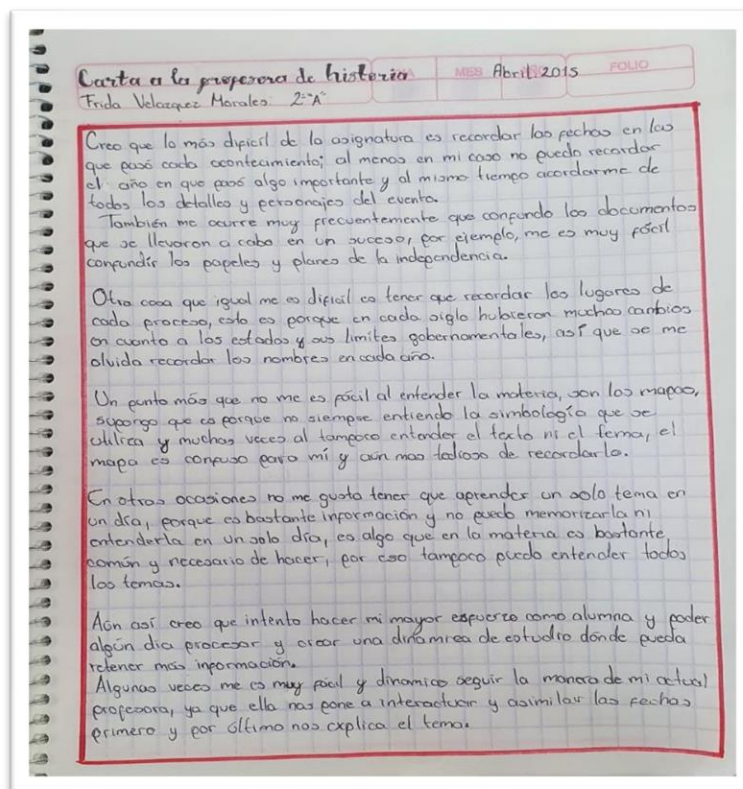 Carta a la profesora de historia MES Abril 2015 FOLIO
Frida Velazquez Morales 2°"A"
Creo que lo más dificil de la asignatura es recordar las fechas en las
que pasó cada acontecimiento; al menos en mi caso no puedo recordar
el año en que pasó algo importante y al mismo tiempo acordarme de
todos los detalles y personajes del evento.
También me ocurre muy frecuentemente que confundo los documentos
que se llevaron a cabo en un suceso, por ejemplo, me es muy fácil
confundir los papeles y planes de la independencia.
Otra cosa que igual me es dificil es tener que recordar los lugares de
cada proceso, esto es porque en cada siglo hubieron muchos cambios
en cuanto a los estados y sus limites gobernamentales, así que se me
olvida recordar los nombres en cada año.
Un punto más que no me es fácil al entender la materia, son los mapas,
supongo que es porque no siempre entiendo la simbología que se
utiliza y muchas veces al tampoco entender el texto ni el tema, el
mapa es confuso para mí y aún mas tedioso de recordarlo.
En otras ocasiones no me gusta tener que aprender un solo tema en
un día, porque es bastante información y no puedo memorizarla ni
entenderla en un solo día, es algo que en la materia es bastante
común y necesario de hacer, por eso tampoco puedo entender todos
los temas.
Aún así creo que intento hacer mi mayor esfuerzo como alumna y poder
algún dia procesar y crear una dinámica de estudio donde pueda
retener más información.
Algunas veces me es muy fácil y dinamico seguir la manera de mi actual
profesora, ya que ella nos pone a interactuar y asimilar las fechas
primero y por último nos explica el tema.